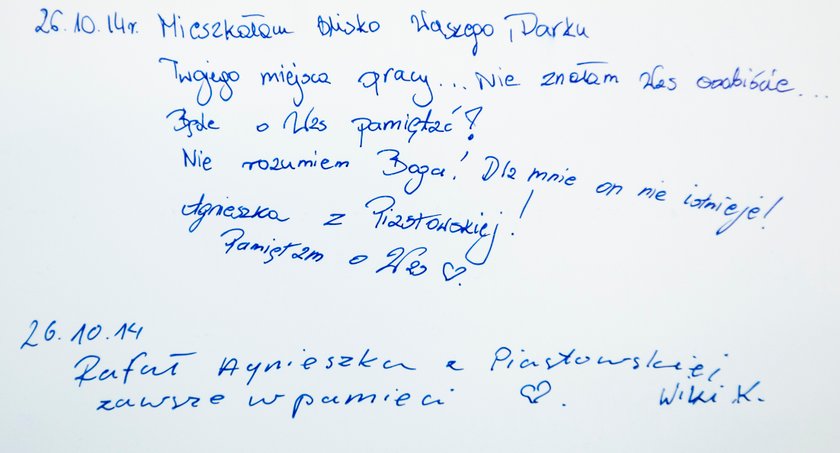 26.10.14r. Mieszkałam blisko Waszego, Darku
Twojego miejsca pracy... Nie znałam Was osobiście...
Będę o Was pamiętać!
Nie rozumiem Boga! Dla mnie on nie istnieje!
Agnieszka z Piastowskiej!
Pamiętam o Was ♡.
26.10.14
Rafał Agnieszka z Piastowskiej,
zawsze w pamięci ♡. Wiki K.